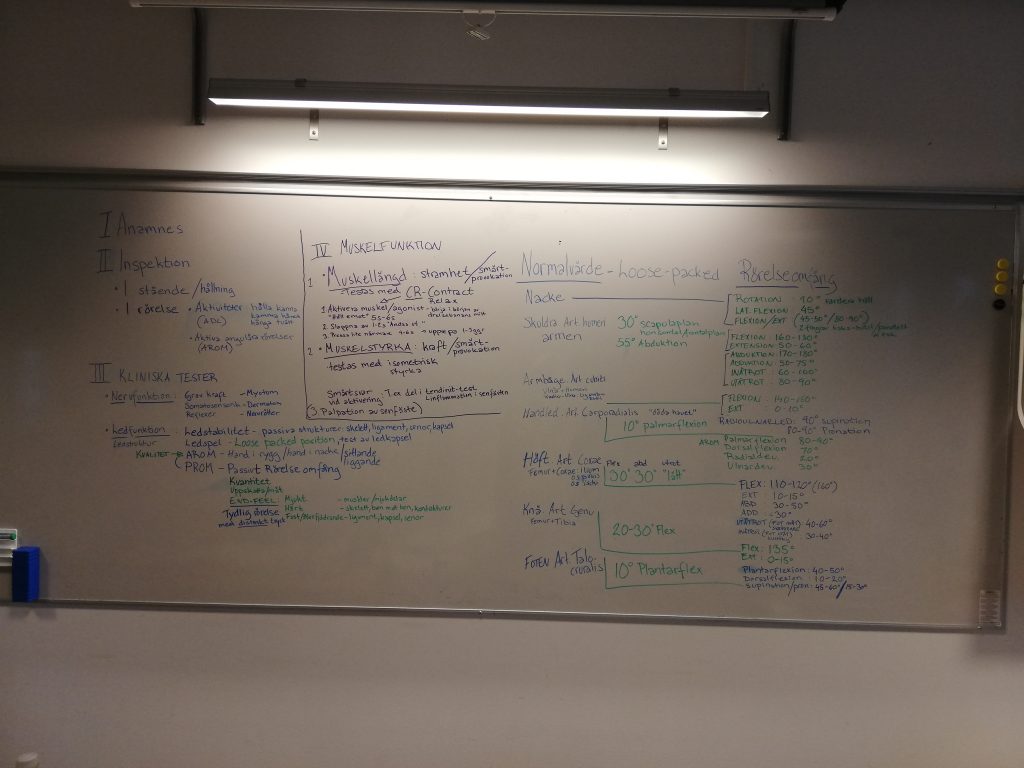 I Anamnes
II Inspektion
• I stående/hållning
• I rörelse • Aktiviteter: hålla kanna
(ADL)
hänga tvätt
• Aktiva angulära rörelser
(AROM)
III KLINISKA TESTER
• Nervfunktion: Grov kraft - Myotom
- Dermatom
Reflexer
• Ledfunktion: Ledstabilitet - passiva strukturer: skelett, ligament, senor, kapsel
Ledspel - Loose packed position, test av ledkapsel
KVALITET → AROM - Hand i rygg/hand i nacke/sittande
liggande
PROM - Passivt Rörelse omfång
Kvantitet
Uppskatta/mät
END-FEEL: Mjukt - muskler/mjukdelar
Tydlig rörelse Hårt - skelett, ben mot ben,
med distinkt Fast/återfjädrande - ligament, kapsel, senor
IV MUSKELFUNKTION
1 • Muskellängd: stramhet/smärt-
provokation
testas med CR-Contract
Relax
1 Aktivera muskel/agonist
"Håll emot" 5s-6s
2 Slappna av 1-2s "Andas ut"
2 • MUSKELSTYRKA: kraft/smärt-
provokation
testas med isometrisk
styrka
Smärtsvar T.ex del i tendinit-test
vid aktivering (inflammation i senfästen
(3 Palpation av senfäste)
Normalvärde - Loose-packed Rörelseomfång
Nacke
ROTATION
LAT. FLEXION 45°
FLEXION/EXT (45-50°/80-90°)
Skuldra. Art humeri 30° scapulaplan
armen
55° Abduktion
FLEXION: 160-180°
EXTENSION: 50-60°
ABDUKTION: 170-180°
ADDUKTION: 50-75°
INÅTROT: 60-100°
UTÅTROT: 80-90°
Armbåge. Art cubiti
FLEXION: 140-160°
EXT: 0-10°
Handled. Art. "döda havet"
10° palmarflexion
RADIOULNARLED: 90° supination
80-90° Pronation
AROM Palmarflexion 80-90°
Dorsalflexion 70°
Radialdev. 20°
Ulnardev. 30°
Höft Art Coxae Flex abd utrot
30° 30° "lätt"
FLEX: 110-120° (160°)
EXT: 10-15°
ABD: 30-50°
ADD: 30°
40-60°
30-40°
Knä Art Genu
Femur+Tibia
20-30° Flex
Flex: 135°
Ext: 0-15°
FOTEN Art. Talo-
cruralis
10° Plantarflex
Plantarflexion: 40-50°
Dorsalflexion: 10-20°
Supination/pron: 45-60°/15-30°